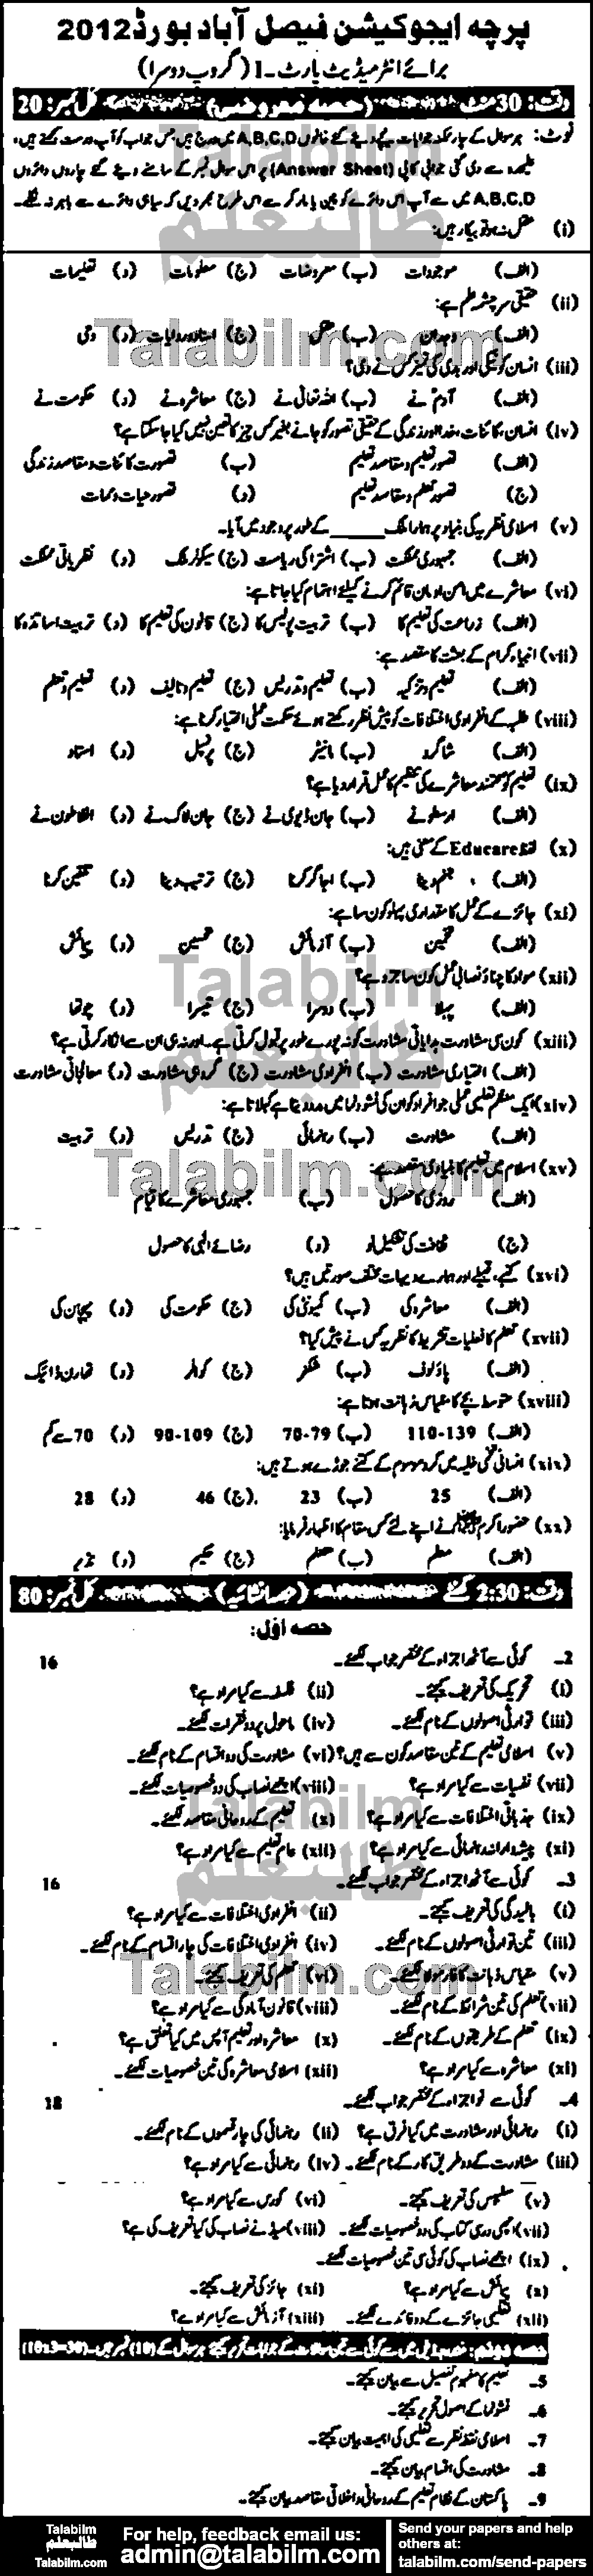 پرچہ ایجوکیشن فیصل آباد بورڈ 2012
برائے انٹرمیڈیٹ پارٹ-I (گروپ دوسرا)
وقت: 30 منٹ (حصہ معروضی) کل نمبر: 20
نوٹ: ہر سوال کے چار ممکنہ جوابات نیچے دیئے گئے خانوں A,B,C,D میں درج ہیں، جس جواب کو آپ درست سمجھتے ہیں،
علیحدہ سے دی گئی جوابی کاپی (Answer Sheet) پر اس سوال نمبر کے سامنے دیئے گئے چاروں دائروں
A,B,C,D میں سے آپ اس دائرے کو پین یا مارکر سے اس طرح بھر دیں کہ سیاہی دائرے سے باہر نہ نکلے۔
(i) عقل نہ ہو تو بیکار ہیں:
(الف) موجودات (ب) معروضات (ج) معلومات (د) تعلیمات
(ii) حقیقی سرچشمہ علم ہے:
(الف) وجدان (ب) عقل (ج) اسناد و روایات (د) وحی
(iii) انسان کو نیکی اور بدی کی تمیز کس نے دی؟
(الف) آدمؑ نے (ب) اللہ تعالیٰ نے (ج) معاشرہ نے (د) حکومت نے
(iv) انسان، کائنات، خدا اور زندگی کے حقیقی تصور کو جانے بغیر کس چیز کا تعین نہیں کیا جا سکتا ہے؟
(الف) تصور تعلیم و مقاصد تعلیم (ب) تصورت کائنات و مقاصد زندگی
(ج) تصور تعلم و مقاصد تعلیم (د) تصور حیات و ممات
(v) اسلامی نظریہ کی بنیاد پر ہمارا ملک ______ کے طور پر وجود میں آیا۔
(الف) جمہوری مملکت (ب) اشتراکی ریاست (ج) سیکولر ملک (د) نظریاتی مملکت
(vi) معاشرے میں امن و امان قائم کرنے کیلئے اہتمام کیا جاتا ہے:
(الف) زراعت کی تعلیم کا (ب) تربیت پولیس کا (ج) قانون کی تعلیم کا (د) تربیت اساتذہ کا
(vii) انبیاء کرام کے بعثت کا مقصد ہے:
(الف) تعلیم و تزکیہ (ب) تعلیم و تدریس (ج) تعلیم و تالیف (د) تعلیم و تعلم
(viii) طلبہ کے انفرادی اختلافات کو پیش نظر رکھتے ہوئے حکمت عملی اختیار کرنا ہے:
(الف) شاگرد (ب) مانیٹر (ج) پرنسپل (د) استاد
(ix) تعلیم کو صحتمند معاشرے کی تنظیم کا عمل قرار دیا ہے؟
(الف) ارسطو نے (ب) جان ڈیوی نے (ج) جان لاک نے (د) افلاطون نے
(x) لفظ Educare کے معنی ہیں:
(الف) جنم دینا (ب) اجاگر کرنا (ج) ترتیب دینا (د) تلقین کرنا
(xi) جائزے کے عمل کا مقداری پہلو کون سا ہے:
(الف) تخمین (ب) آزمائش (ج) تحسین (د) پیمائش
(xii) مواد کا چناؤ نصابی عمل کون سا جزو ہے؟
(الف) پہلا (ب) دوسرا (ج) تیسرا (د) چوتھا
(xiii) کون کی مشاورت ہدایاتی مشاورت کو نہ پورے طور پر قبول کرتی ہے۔ اور نہ ہی ان سے انکار کرتی ہے؟
(الف) اختیاری مشاورت (ب) انفرادی مشاورت (ج) گروہی مشاورت (د) معالجاتی مشاورت
(xiv) ایک منظم تعلیمی عملی جو افراد کو ان کی نشوونما میں مدد دیتا ہے کہلاتا ہے:
(الف) مشاورت (ب) رہنمائی (ج) تدریس (د) تربیت
(xv) اسلام میں تعلیم کا بنیادی مقصد ہے:
(الف) روزی کا حصول (ب) جمہوری معاشرے کا قیام
(ج) ثقافت کی تشکیل نو (د) رضائے الٰہی کا حصول
(xvi) کنبے، قبیلے اور ہمارے دیہات مختلف صورتیں ہیں؟
(الف) معاشرہ کی (ب) کمیونٹی کی (ج) حکومت کی (د) پہچان کی
(xvii) تعلم کا فعلیات تشریط کا نظریہ کس نے پیش کیا؟
(الف) پاؤلوف (ب) سکنر (ج) کوہلر (د) تھارن ڈائیک
(xviii) متوسط بچے کا مقیاس ذہانت ہوتا ہے:
(الف) 110-139 (ب) 70-79 (ج) 90-109 (د) 70 سے کم
(xix) انسانی تخمی خلیہ میں کروموسوم کے کتنے جوڑے ہوتے ہیں:
(الف) 25 (ب) 23 (ج) 46 (د) 28
(xx) حضور اکرم ﷺ نے اپنے لئے کس مقام کا اظہار فرمایا:
(الف) معلم (ب) متعلم (ج) حکیم (د) نذیر
وقت: 2:30 گھنٹے (حصہ انشائیہ) کل نمبر: 80
حصہ اول:
2۔ کوئی سے آٹھ اجزاء کے مختصر جواب لکھئے۔ 16
(i) تحریک کی تعریف کیجئے۔ (ii) فلسفہ سے کیا مراد ہے؟
(iii) توارثی اصولوں کے نام لکھئے۔ (iv) ماحول پر دو فقرات لکھئے۔
(v) اسلامی تعلیم کے تین مقاصد کون سے ہیں؟ (vi) مشاورت کی دو اقسام کے نام لکھئے۔
(vii) نفسیات سے کیا مراد ہے؟ (viii) اچھے نصاب کی دو خصوصیات لکھئے۔
(ix) جذباتی اختلافات سے کیا مراد ہے؟ (x) تعلیم کے دو روحانی مقاصد لکھئے۔
(xi) پیشہ وارانہ رہنمائی سے کیا مراد ہے؟ (xii) عام تعلیم سے کیا مراد ہے؟
3۔ کوئی سے آٹھ اجزاء کے مختصر جواب لکھئے۔ 16
(i) بالیدگی کی تعریف کیجئے۔ (ii) انفرادی اختلافات سے کیا مراد ہے؟
(iii) تین توارثی اصولوں کے نام لکھئے۔ (iv) انفرادی اختلافات کی چار اقسام کے نام لکھئے۔
(v) مقیاس ذہانت کا فارمولا لکھئے۔ (vi) تعلم کی تعریف کیجئے۔
(vii) تعلم کی تین شرائط کے نام لکھئے۔ (viii) قانون آمادگی سے کیا مراد ہے؟
(ix) تعلم کے طریقوں کے نام لکھئے۔ (x) معاشرہ اور تعلیم آپس میں کیا تعلق ہے؟
(xi) معاشرہ سے کیا مراد ہے؟ (xii) اسلامی معاشرہ کی تین خصوصیات لکھئے۔
4۔ کوئی سے نو اجزاء کے مختصر جواب لکھئے۔ 18
(i) رہنمائی اور مشاورت میں کیا فرق ہے؟ (ii) رہنمائی کی چار قسموں کے نام لکھئے۔
(iii) مشاورت کے دو طریق کار کے نام لکھئے۔ (iv) رہنمائی سے کیا مراد ہے؟
(v) سلیبس کی تعریف کیجئے۔ (vi) کورس سے کیا مراد ہے؟
(vii) اچھی دری کتاب کی دو خصوصیات لکھئے۔ (viii) میڈ نے نصاب کی کیا تعریف کی ہے؟
(ix) اچھے نصاب کی کوئی سی تین خصوصیات لکھئے۔
(x) پیمائش سے کیا مراد ہے؟ (xi) جائزہ کی تعریف کیجئے۔
(xii) تعلیمی جائزے کے دو فائدے لکھئے۔ (xiii) آزمائش سے کیا مراد ہے؟
حصہ دوئم: مندرجہ ذیل میں سے کوئی سے تین سوالات کے جوابات تحریر کیجئے ہر سوال کے (10) نمبر ہیں۔ (10x3=30)
5۔ تعلیم کا مفہوم تفصیل سے بیان کیجئے۔
6۔ نشوونما کے اصول تحریر کیجئے۔
7۔ اسلامی نقطہ نظر سے تعلیم کی اہمیت بیان کیجئے۔
8۔ مشاورت کی اقسام بیان کیجئے۔
9۔ پاکستان کے نظام تعلیم کے روحانی و اخلاقی مقاصد بیان کیجئے۔
Talabilm
طالبعلم
Talabilm.com
For help, feedback email us:
admin@talabilm.com
Send your papers and help
others at:
talabilm.com/send-papers